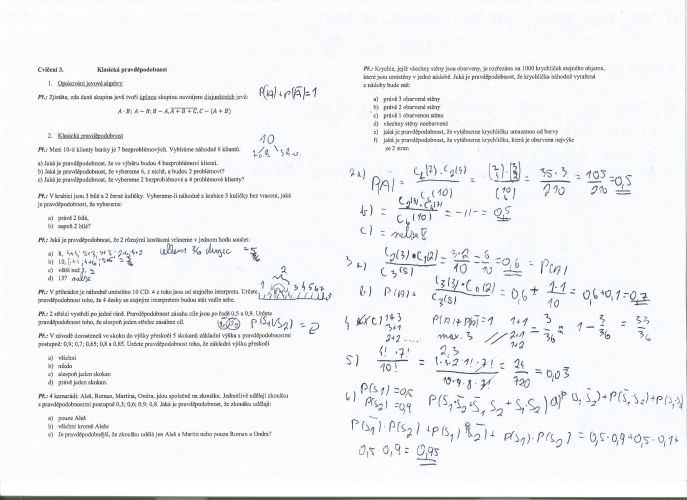 Cvičení 3. Klasická pravděpodobnost
1. Opakování jevové algebry
Př.: Zjistěte, zda daná skupina jevů tvoří úplnou skupinu navzájem disjunktních jevů:
P(A)+P(Ā)=1
2. Klasická pravděpodobnost
10
Př.: Mezi 10-ti klienty banky je 7 bezproblémových. Vybíráme náhodně 6 klientů.
a) Jaká je pravděpodobnost, že ve výběru budou 4 bezproblémoví klienti.
b) Jaká je pravděpodobnost, že vybereme 6, z nichž, a budou 2 problémoví?
c) Jaká je pravděpodobnost, že vybereme 2 bezproblémové a 4 problémové klienty?
Př.: V krabici jsou 3 bílé a 2 černé kuličky. Vybereme-li náhodně z krabice 3 kuličky bez vracení, jaká
je pravděpodobnost, že vybereme:
a) právě 2 bílé,
b) aspoň 2 bílé?
Př.: Jaká je pravděpodobnost, že 2 různými kostkami vrhneme v jednom hodu součet:
a) 8,
celkem 36 dvojic
b) 10,
c) větší než 3,
d) 13? nelze
Př.: V přihrádce je náhodně umístěno 10 CD. 4 z toho jsou od stejného interpreta. Určete
pravděpodobnost toho, že 4 desky se stejným interpretem budou stát vedle sebe.
Př.: 2 střelci vystřelí po jedné ráně. Pravděpodobnost zásahu cíle jsou po řadě 0,5 a 0,9. Určete
pravděpodobnost toho, že alespoň jeden střelec zasáhne cíl.
Př.: V závodě dorostenců ve skoku do výšky přeskočí 5 skokanů základní výšku s pravděpodobnostmi
postupně: 0,9; 0,7; 0,65; 0,8 a 0,85. Určete pravděpodobnost toho, že základní výšku přeskočí
a) všichni
b) nikdo
c) alespoň jeden skokan
d) právě jeden skokan.
Př.: 4 kamarádi: Aleš, Roman, Martina, Ondra, jdou společně na zkoušku. Jednotlivě udělají zkoušku
s pravděpodobnostmi postupně 0,3; 0,6; 0,9; 0,8. Jaká je pravděpodobnost, že zkoušku udělají:
a) pouze Aleš
b) všichni kromě Aleše
c) Je pravděpodobnější, že zkoušku udělá jen Aleš a Martin nebo pouze Roman a Ondra?
Př.: Krychle, jejíž všechny stěny jsou obarveny, je rozřezána na 1000 krychliček stejného objemu,
které jsou umístěny v jedné nádobě. Jaká je pravděpodobnost, že krychlička náhodně vytažená
z nádoby bude mít:
a) právě 3 obarvené stěny
b) právě 2 obarvené stěny
c) právě 1 obarvenou stěnu
d) všechny stěny neobarvené
e) jaká je pravděpodobnost, že vytáhneme krychličku umazanou od barvy
f) jaká je pravděpodobnost, že vytáhneme krychličku, která je obarvena nejvýše
ze 2 stran
= 35·3/210 = 105/210 = 0,5
= -11- = 0,5
c) = nelze
= 3·2/10 = 6/10 = 0,6 = P(A)
= 0,6 + 1·1/10 = 0,6+0,1 = 0,7
= 3/36 = 1 - 3/36 = 33/36
5) 4!·7!/10! = 24/720 = 0,03
6) P(S₁)=0,5
P(S₂)=0,9
= 0,5·0,9+0,5·0,1+
0,5·0,9 = 0,95